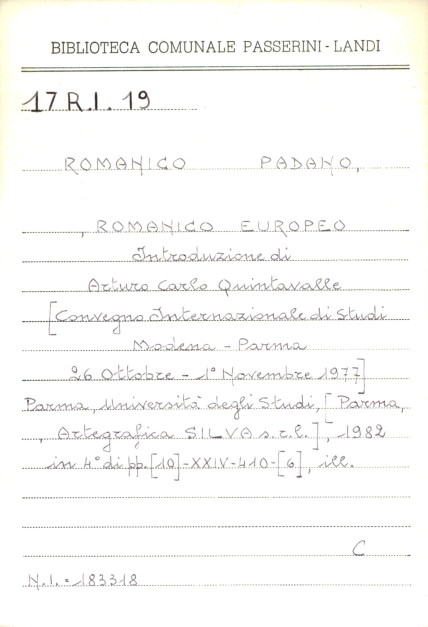 BIBLIOTECA COMUNALE PASSERINI-LANDI
17 R.I. 19
ROMANICO PADANO,
, ROMANICO EUROPEO
Introduzione di
Arturo Carlo Quintavalle
[Convegno Internazionale di Studi
Modena - Parma
26 Ottobre - 1° Novembre 1977]
Parma, Università degli Studi, [Parma,
, Artegrafica SILVA s.r.l.], 1982
in 4° di pp. [10]-XXIV-410-[6], ill.
C
N.I. = 183318